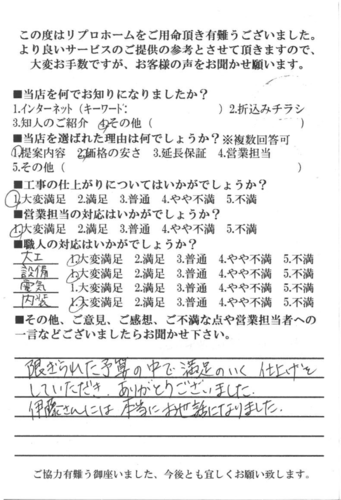 この度はリプロホームをご用命頂き有難うございました。
より良いサービスのご提供の参考とさせて頂きますので、
大変お手数ですが、お客様の声をお聞かせ願います。
■当店を何でお知りになりましたか？
1.インターネット（キーワード:　　　　　　　）2.折込みチラシ
3.知人のご紹介　4.その他（　　　　　　　　　　　）
■当店を選ばれた理由は何でしょうか？※複数回答可
1.提案内容　2.価格の安さ　3.延長保証　4.営業担当
5.その他（　　　　　　　　　　　　　　　　）
■工事の仕上がりについてはいかがでしょうか？
1.大変満足　2.満足　3.普通　4.やや不満　5.不満
■営業担当の対応はいかがでしょうか？
1.大変満足　2.満足　3.普通　4.やや不満　5.不満
■職人の対応はいかがでしょうか？
大工　1.大変満足　2.満足　3.普通　4.やや不満　5.不満
設備　1.大変満足　2.満足　3.普通　4.やや不満　5.不満
電気　1.大変満足　2.満足　3.普通　4.やや不満　5.不満
内装　1.大変満足　2.満足　3.普通　4.やや不満　5.不満
■その他、ご意見、ご感想、ご不満な点や営業担当者への
一言などございましたらお聞かせ下さい。
限られた予算の中で満足のいく仕上げを
していただき、ありがとうございました。
伊藤さんには本当にお世話になりました。
ご協力有難う御座いました、今後とも宜しくお願い致します。